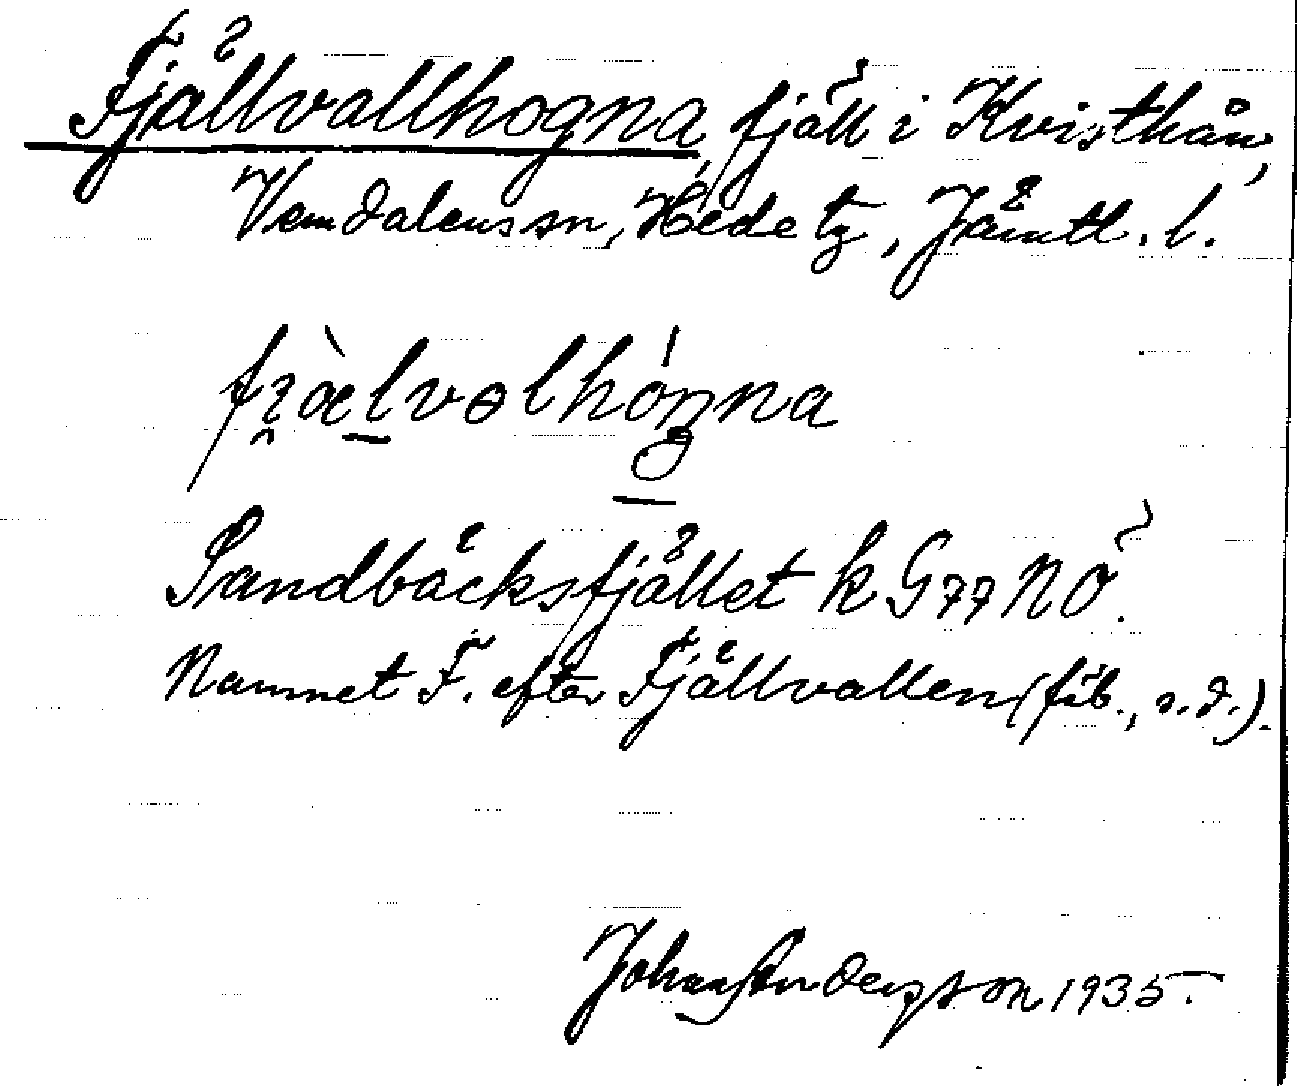 Fjällvallhogna, fjäll i Kvisthån,
Vemdalens sn, Hede tg, Jämtl. l.
fi̯æ̀lvəlhóŋna
Sandbäcksfjället k G77 NÖ.
Namnet F. efter Fjällvallen (fäb., s.d.).
Johan Anderzson 1935.